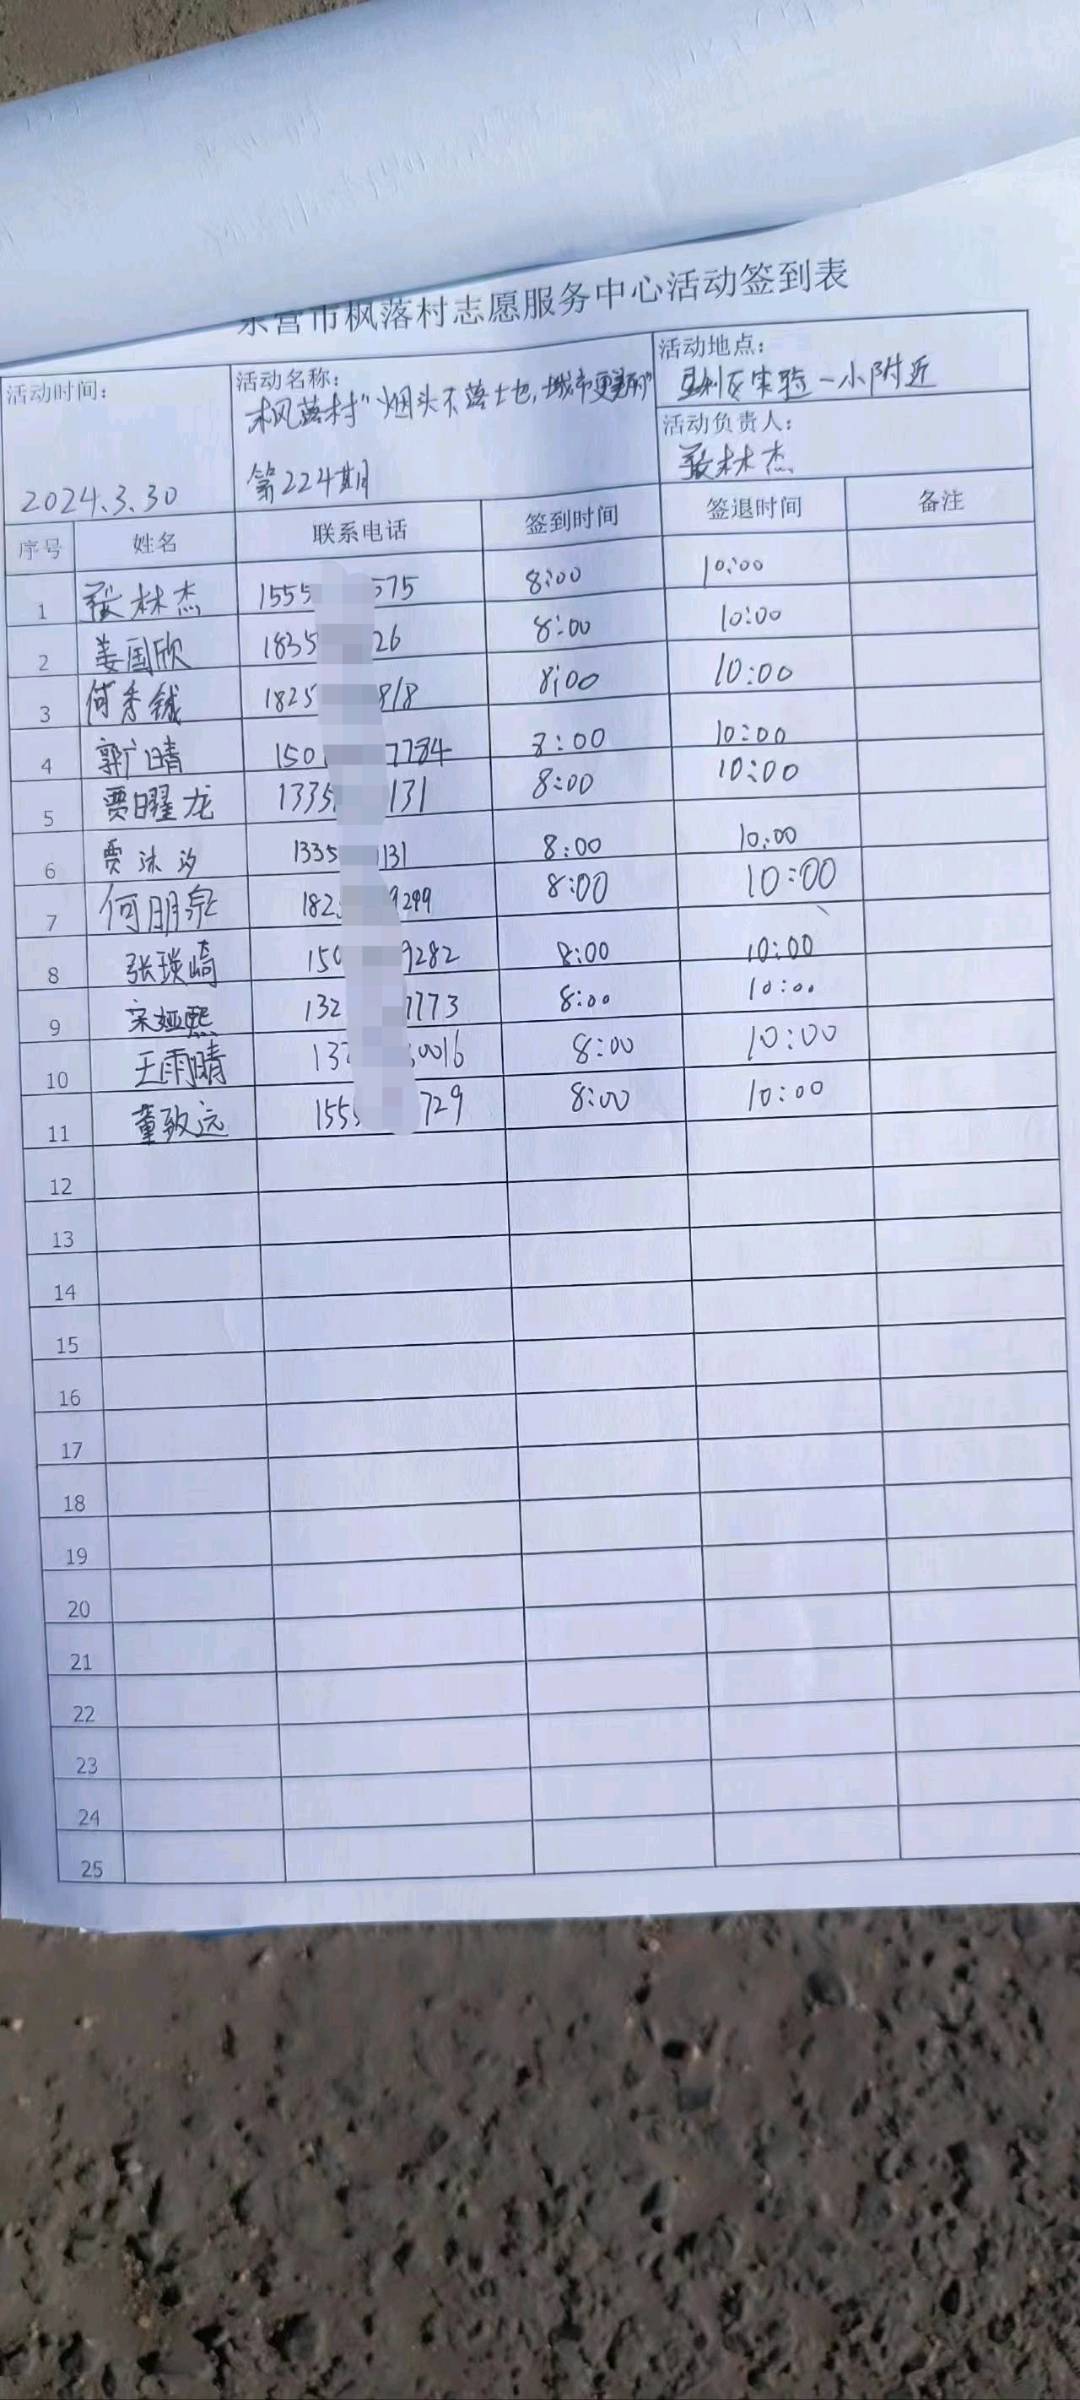 东营市枫落村志愿服务中心活动签到表
活动时间：
2024.3.30
活动名称：
枫落村“烟头不落地，城市更美丽”
第224期
活动地点：
垦利区实验一小附近
活动负责人：
林杰
序号 姓名 联系电话 签到时间 签退时间 备注
1 林杰 1555 575 8:00 10:00
2 姜国欣 1835 26 8:00 10:00
3 何秀钺 1825 818 8:00 10:00
4 郭广晴 150 7784 8:00 10:00
5 贾曜龙 1335 131 8:00 10:00
6 贾沐汐 1335 131 8:00 10:00
7 何朋泉 182 9299 8:00 10:00
8 张琰崎 150 9282 8:00 10:00
9 宋娅熙 132 7773 8:00 10:00
10 王雨晴 132 60016 8:00 10:00
11 董致远 155 729 8:00 10:00
12
13
14
15
16
17
18
19
20
21
22
23
24
25